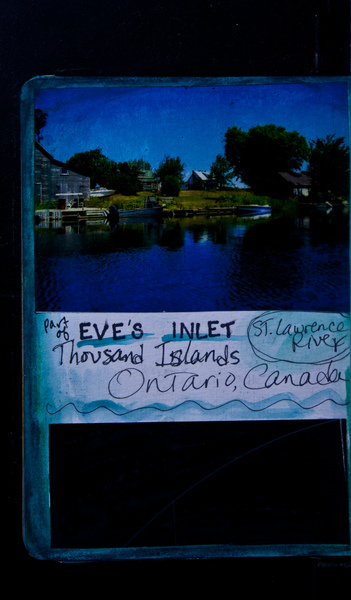 part of EVE'S INLET
St. Lawrence River
Thousand Islands
Ontario, Canada